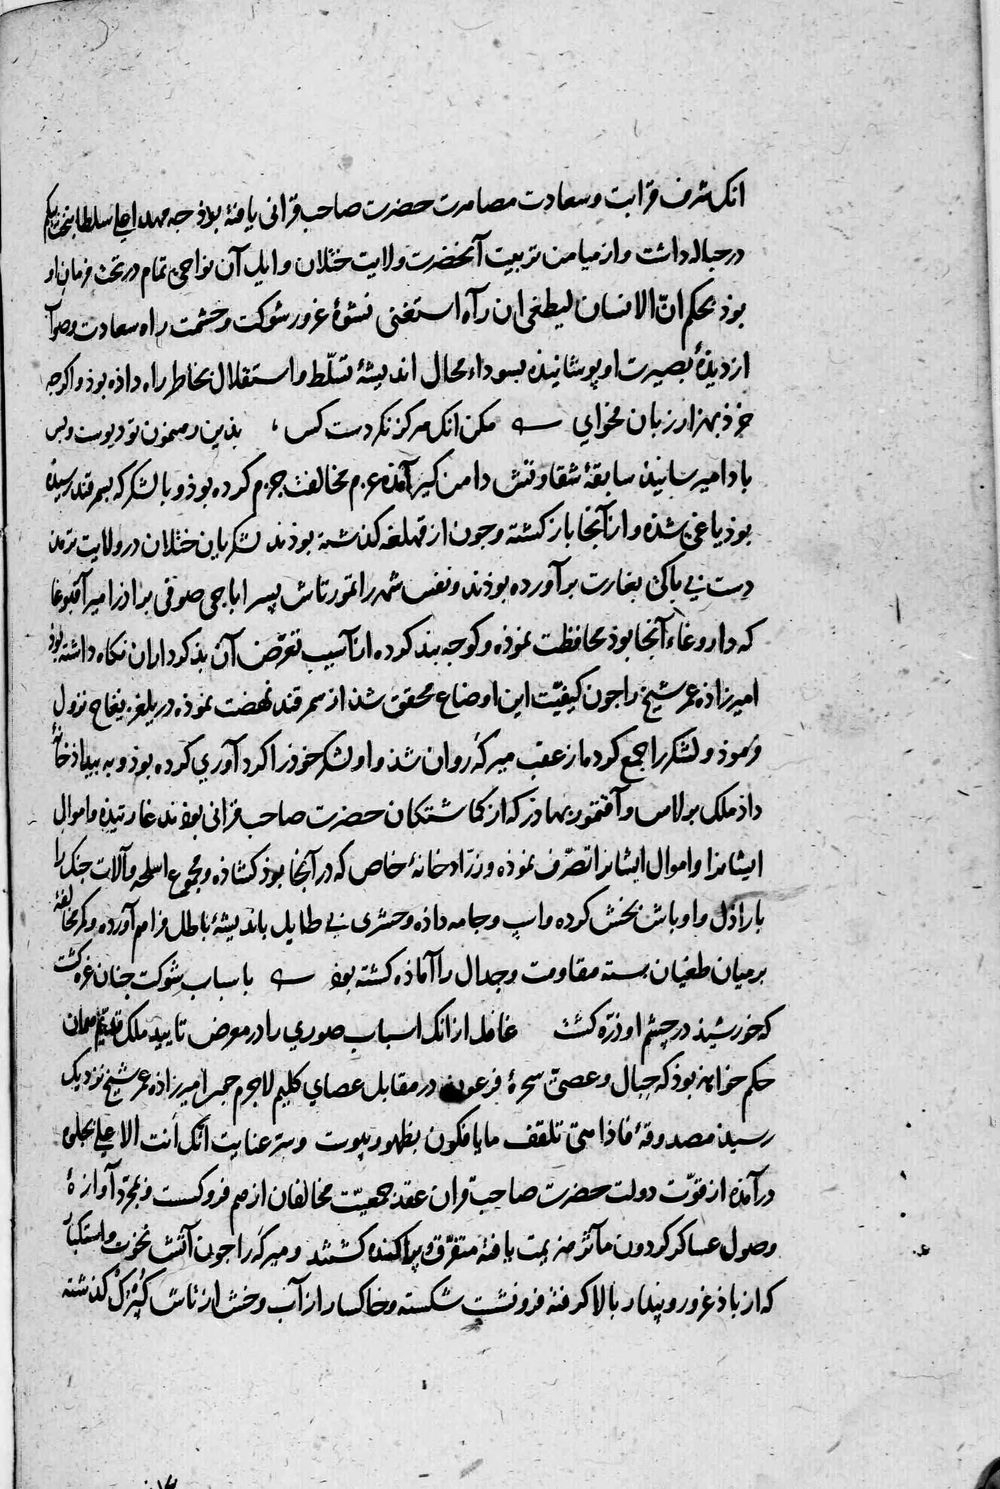 انک شرف قرابت و سعادت مصاهرت حضرت صاحب قرانی یافته بوذ جه مهد اعلی سلطان بخت بیکم
در حباله داشت و از میامن تربیت آنحضرت ولایت ختلان و ایل آن نواحی تمام در تحت فرمان او
بوذ بحکم انّ الانسان لیطغی ان رآه استغنی نشوهٔ غرور شوکت و حشمت راه سعادت و صواب
از دیذهٔ بصیرت او پوشانیذه بسوداء محال اندیشهٔ تسلّط و استقلال بخاطر راه داذه بوذ و اکرجه
خرذ بهزار زبان میخواند مکن انک هرکز نکرد ست کس ، بذین رهنمون تو دیوست و بس
با دامیر سانیذ سابقهٔ شقاوتش دامن کیر آمذه عزم مخالفت جزم کرده بوذ و با لشکر که بسمرقند رسیذه
بوذ یاغی شذه و از آنجا بازکشته و جون از قهلغه کذشته بوذند لشکریان ختلان در ولایت ترمذ
دست بی باکی بغارت برآورده بوذند و نفس شهر را تمورتاش پسر اباجی صوفی براذر امیر آقبوغا
که داروغاء آنجا بوذ محافظت نموذه و کوجه بند کرده از آسیب تعرّض آن بذکرداران نکاه داشته بوذ
امیرزاذه عمر شیخ را جون کیفیّت این اوضاع محقق شذ از سمرقند نهضت نموذه در یلغز یغاج نزول
فرموذ و لشکر را جمع کرد از عقب میرکه روان شذ و او لشکر خوذ را کرد آوری کرده بوذ و به بیداذ خانهٔ
داذ ملک برلاس و آقتمور بهادر که از کماشتکان حضرت صاحب قرانی بوذند غارتیذه و اموال
ایشانرا و اموال ایشانرا تصرّف نموذه و زرّاد خانهٔ خاص که در آنجا بوذ کشاذه و مجموع اسلحه و آلات جنک را
باراذل و اوباش بخش کرده و اسپ و جامه داذه و حشری بی طایل باندیشهٔ باطل فراهم آورده و کمر مخالفهٔ
بر میان طغیان بسته مقاومت و جدال را آماذه کشته بوذ باسباب شوکت جنان غره کشت
که خورشید در جشم او ذرّه کشت غافل از انک اسباب صوری را در معرض تایید ملک قدیم همان
حکم خواهد بوذ که حبال و عصیّ سحرهٔ فرعون در مقابل عصای کلیم لاجرم جمر امیرزاذه عمر شیخ نزدیک
رسیذ مصدوقهٔ فاذا هی تلقف ما یافکون بظهور پیوست و سر عنایت انّک أنت الاعلی بجلوه
درآمذه از قوّت دولت حضرت صاحب قران عقد جمعیّت مخالفان از هم فروکست و بمجرّد آوازهٔ
وصول عساکر کردون مآثر هزیمت یافته متفرّق و پراکنده کشتند و میرکه را جون آتش نخوت و استکبار
که از باذ غرور و پندار بالا کرفته فرونشست شکسته و خاکسار از آب وخش از تاش کپرک کذشته